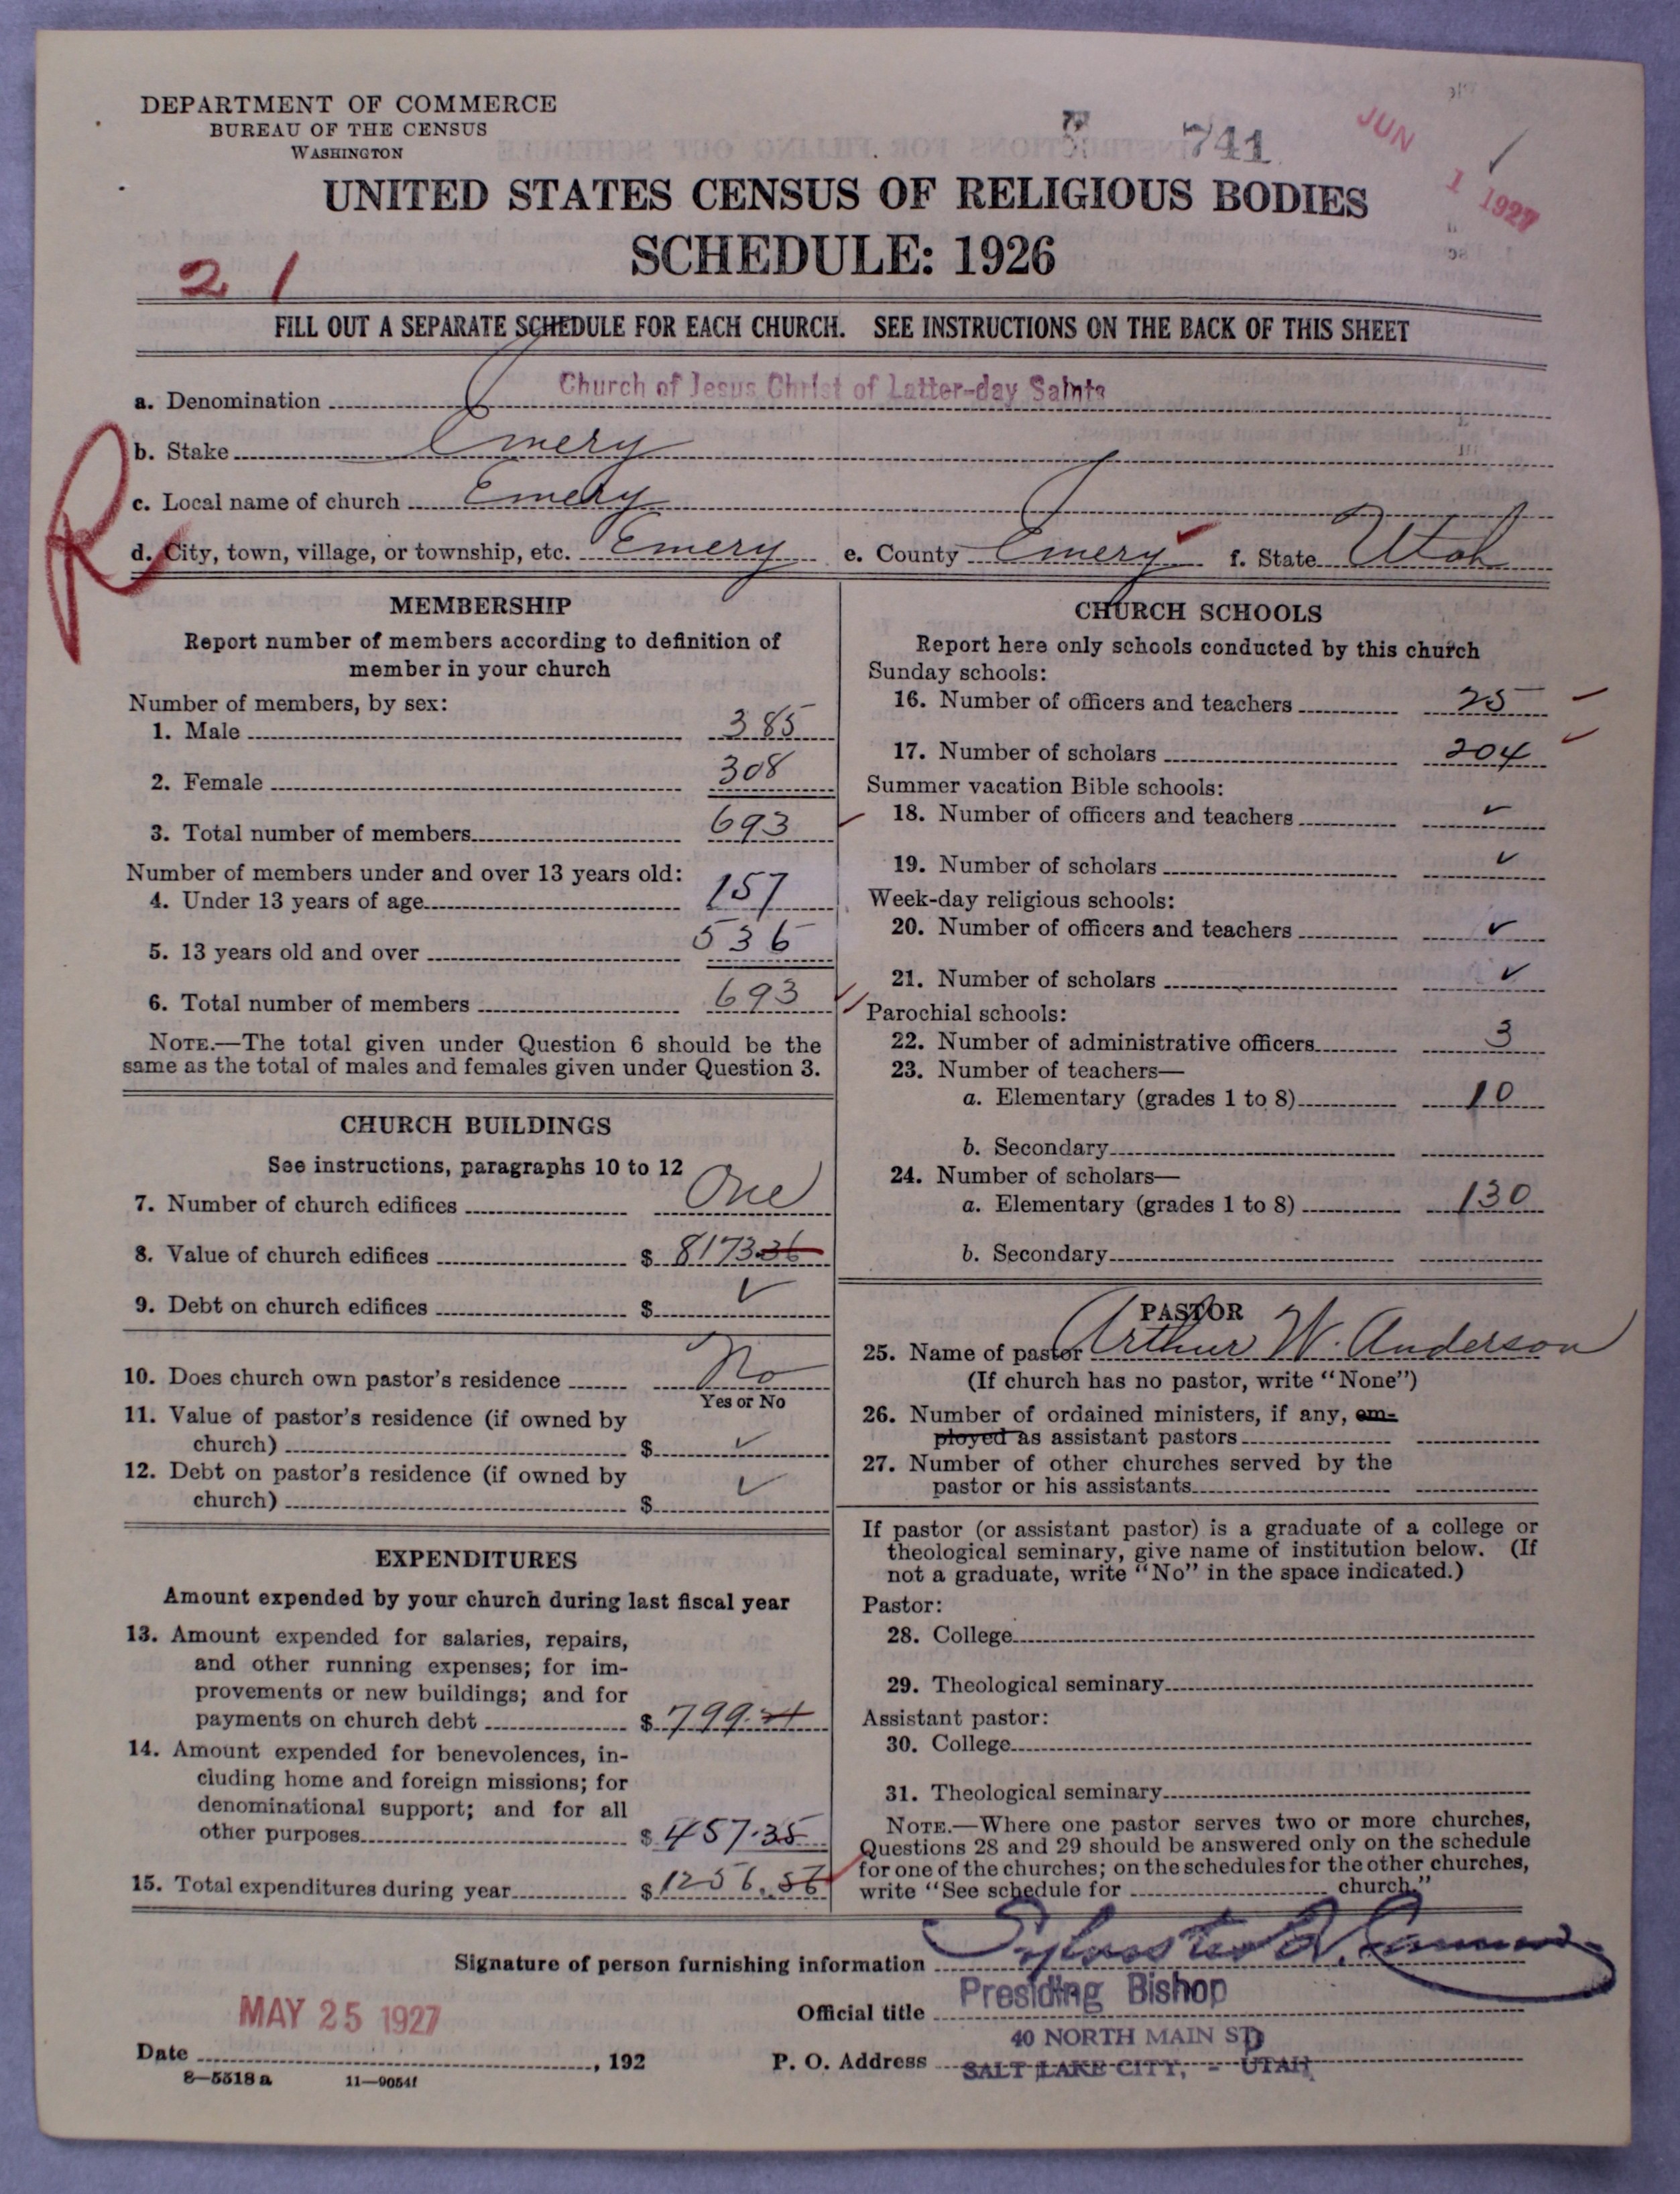 DEPARTMENT OF COMMERCE
BUREAU OF THE CENSUS
WASHINGTON
741
JUN 1 1927
UNITED STATES CENSUS OF RELIGIOUS BODIES
SCHEDULE: 1926
2 1
FILL OUT A SEPARATE SCHEDULE FOR EACH CHURCH. SEE INSTRUCTIONS ON THE BACK OF THIS SHEET
a. Denomination Church of Jesus Christ of Latter-day Saints
b. Stake Emery
c. Local name of church Emery
R
d. City, town, village, or township, etc. Emery e. County Emery f. State Utah
MEMBERSHIP
Report number of members according to definition of
member in your church
Number of members, by sex:
1. Male 385
2. Female 308
3. Total number of members 693
Number of members under and over 13 years old:
4. Under 13 years of age 157
5. 13 years old and over 536
6. Total number of members 693
NOTE.—The total given under Question 6 should be the
same as the total of males and females given under Question 3.
CHURCH BUILDINGS
See instructions, paragraphs 10 to 12
7. Number of church edifices One
8. Value of church edifices $ 8173.36
9. Debt on church edifices $ ✓
10. Does church own pastor's residence No
Yes or No
11. Value of pastor's residence (if owned by
church) $ ✓
12. Debt on pastor's residence (if owned by
church) $ ✓
EXPENDITURES
Amount expended by your church during last fiscal year
13. Amount expended for salaries, repairs,
and other running expenses; for im-
provements or new buildings; and for
payments on church debt $ 799.21
14. Amount expended for benevolences, in-
cluding home and foreign missions; for
denominational support; and for all
other purposes $ 457.35
15. Total expenditures during year $ 1256.56
CHURCH SCHOOLS
Report here only schools conducted by this church
Sunday schools:
16. Number of officers and teachers 25
17. Number of scholars 204
Summer vacation Bible schools:
18. Number of officers and teachers ✓
19. Number of scholars ✓
Week-day religious schools:
20. Number of officers and teachers ✓
21. Number of scholars ✓
Parochial schools:
22. Number of administrative officers 3
23. Number of teachers—
a. Elementary (grades 1 to 8) 10
b. Secondary
24. Number of scholars—
a. Elementary (grades 1 to 8) 130
b. Secondary
PASTOR
25. Name of pastor Arthur W. Anderson
(If church has no pastor, write "None")
26. Number of ordained ministers, if any, em-
ployed as assistant pastors
27. Number of other churches served by the
pastor or his assistants
If pastor (or assistant pastor) is a graduate of a college or
theological seminary, give name of institution below. (If
not a graduate, write "No" in the space indicated.)
Pastor:
28. College
29. Theological seminary
Assistant pastor:
30. College
31. Theological seminary
NOTE.—Where one pastor serves two or more churches,
Questions 28 and 29 should be answered only on the schedule
for one of the churches; on the schedules for the other churches,
write "See schedule for church."
Signature of person furnishing information Sylvester Q. Cannon
Official title Presiding Bishop
MAY 25 1927
Date , 192
P. O. Address 40 NORTH MAIN ST.
SALT LAKE CITY, - UTAH
8—5518a 11—9054f